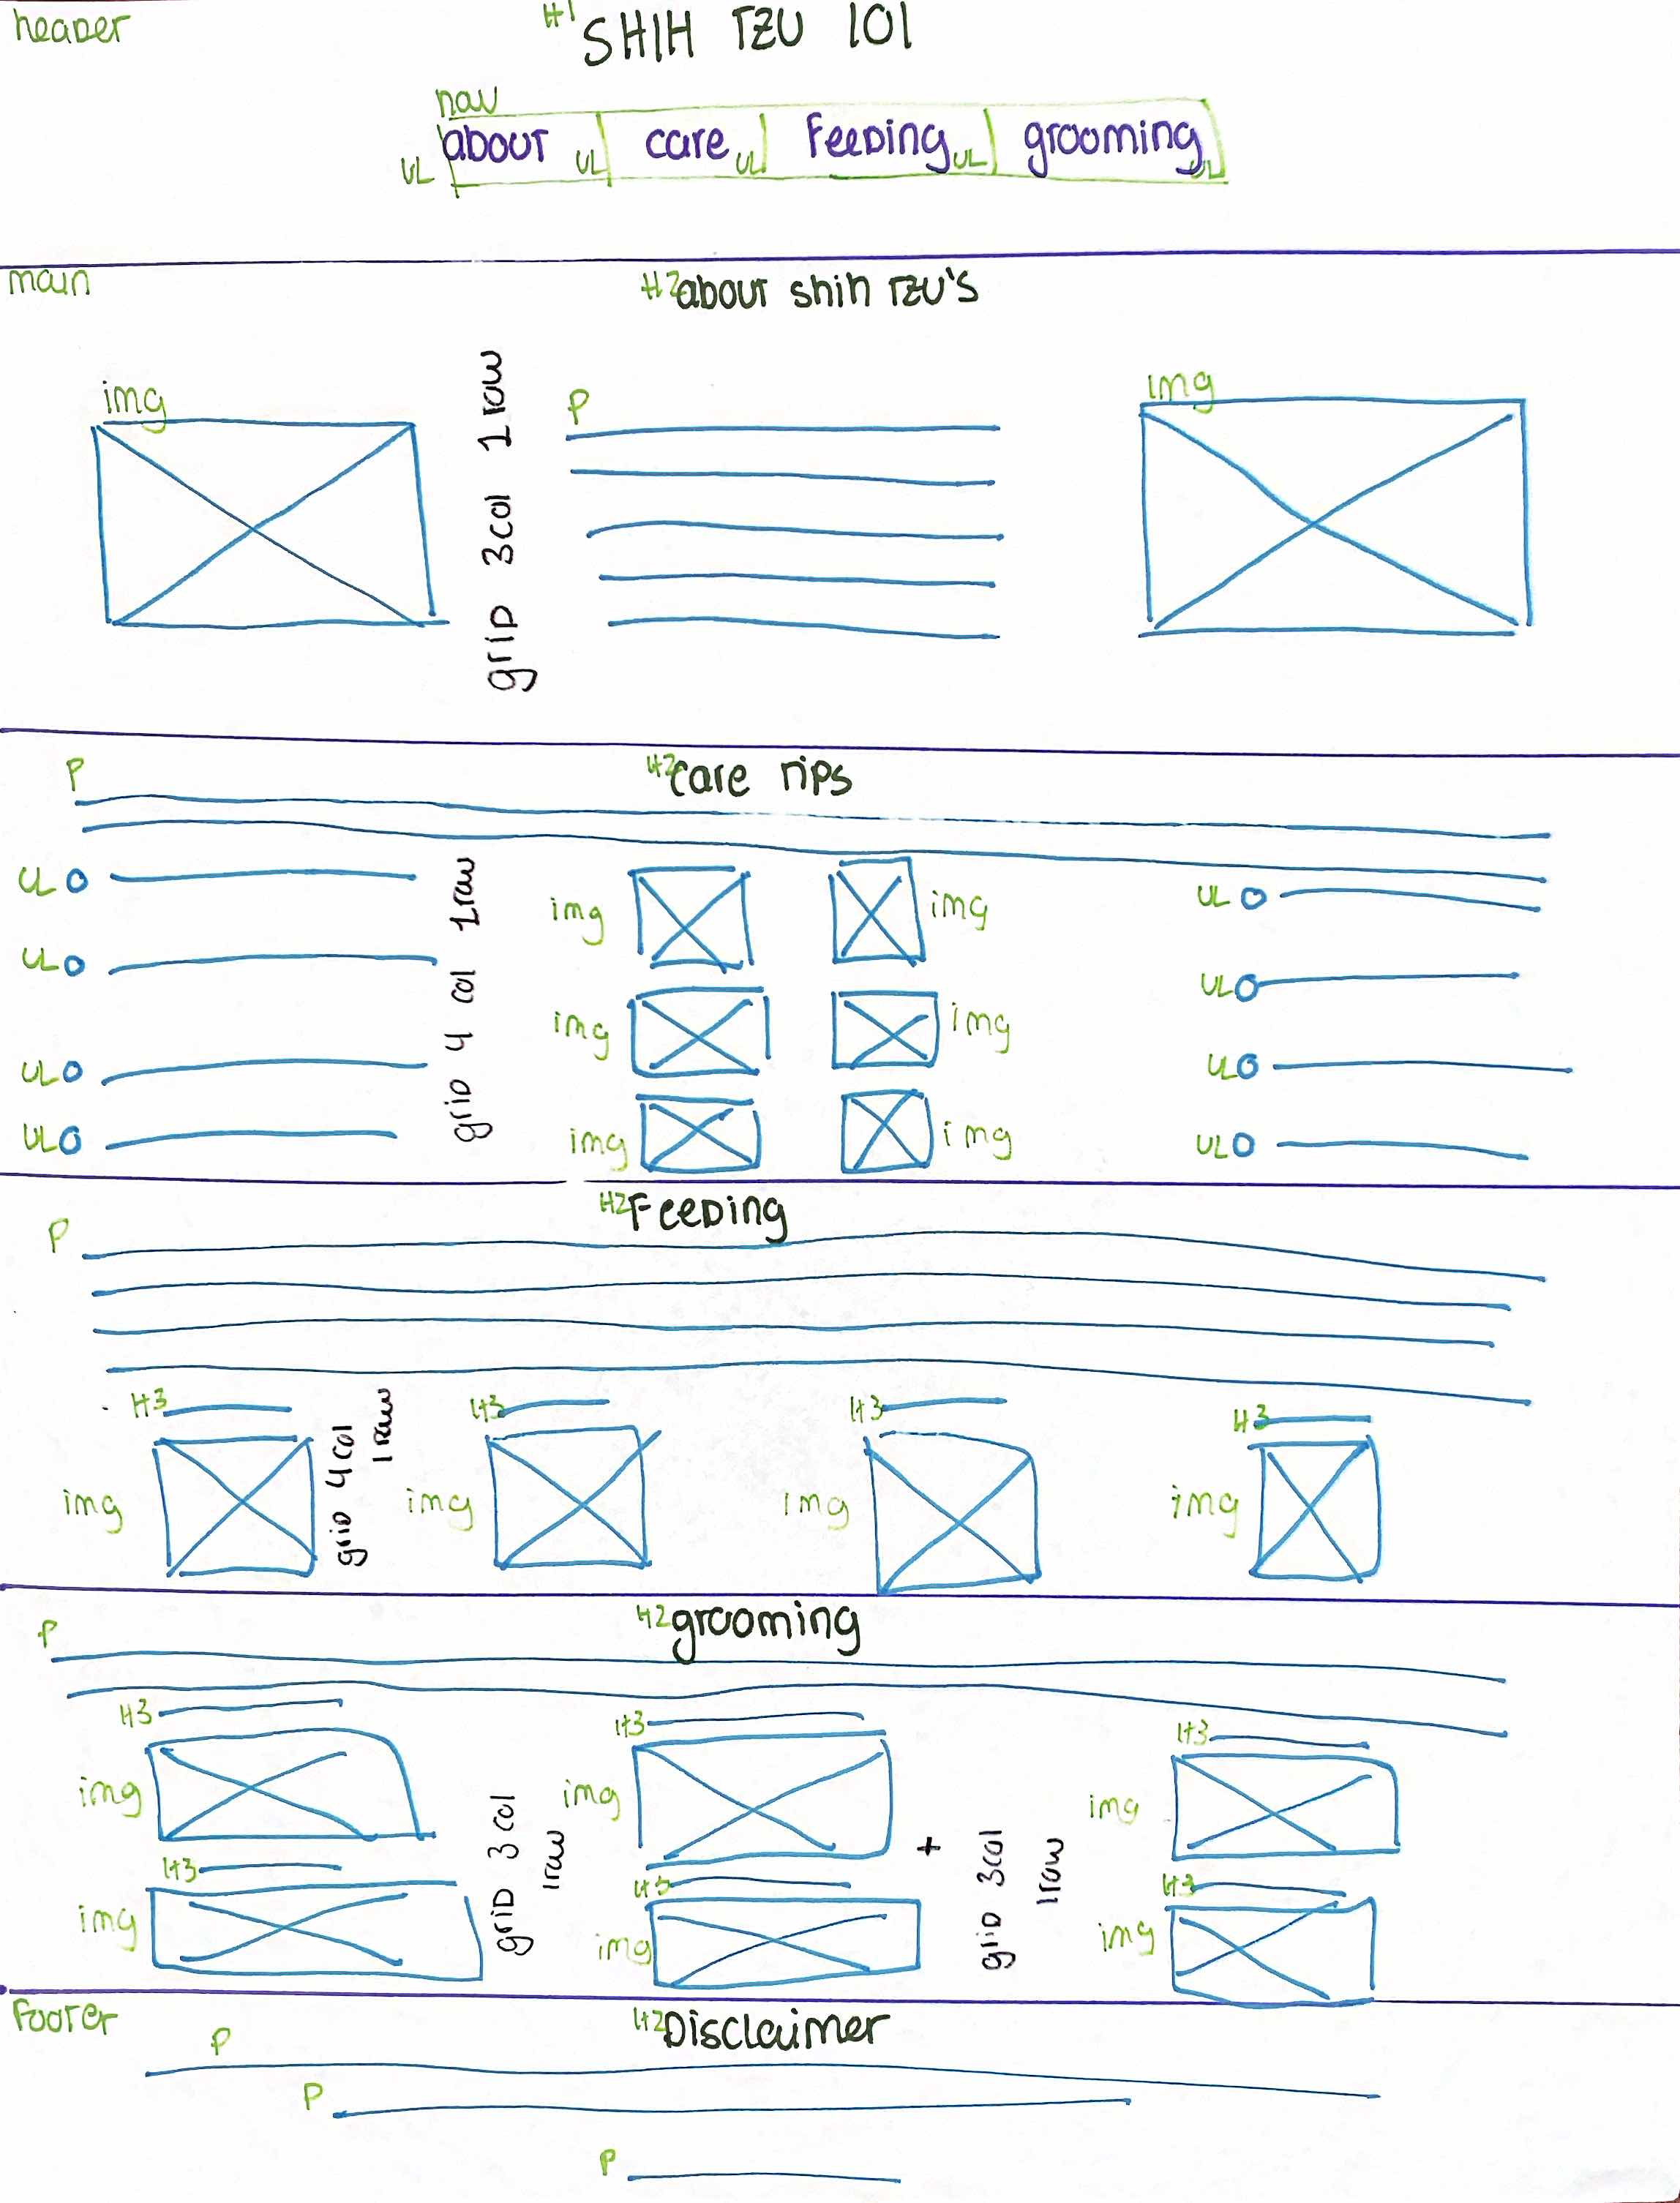 header
H1 SHIH TZU 101
nav
UL about UL care UL Feeding UL grooming UL
main
H2 about shih TZU's
img
grid 3col 1row
P
img
P
H2 care tips
UL
UL
UL
UL
grid 4 col 1row
img img
img img
img img
UL
UL
UL
UL
H2 Feeding
P
H3 H3 H3 H3
img
grid 4col
1row
img img img
H2 grooming
P
H3 H3 H3
img img img
H3 H3 H3
img img img
grid 3col
1row
+
grid 3col
1row
Footer
H2 Disclaimer
P
P
P